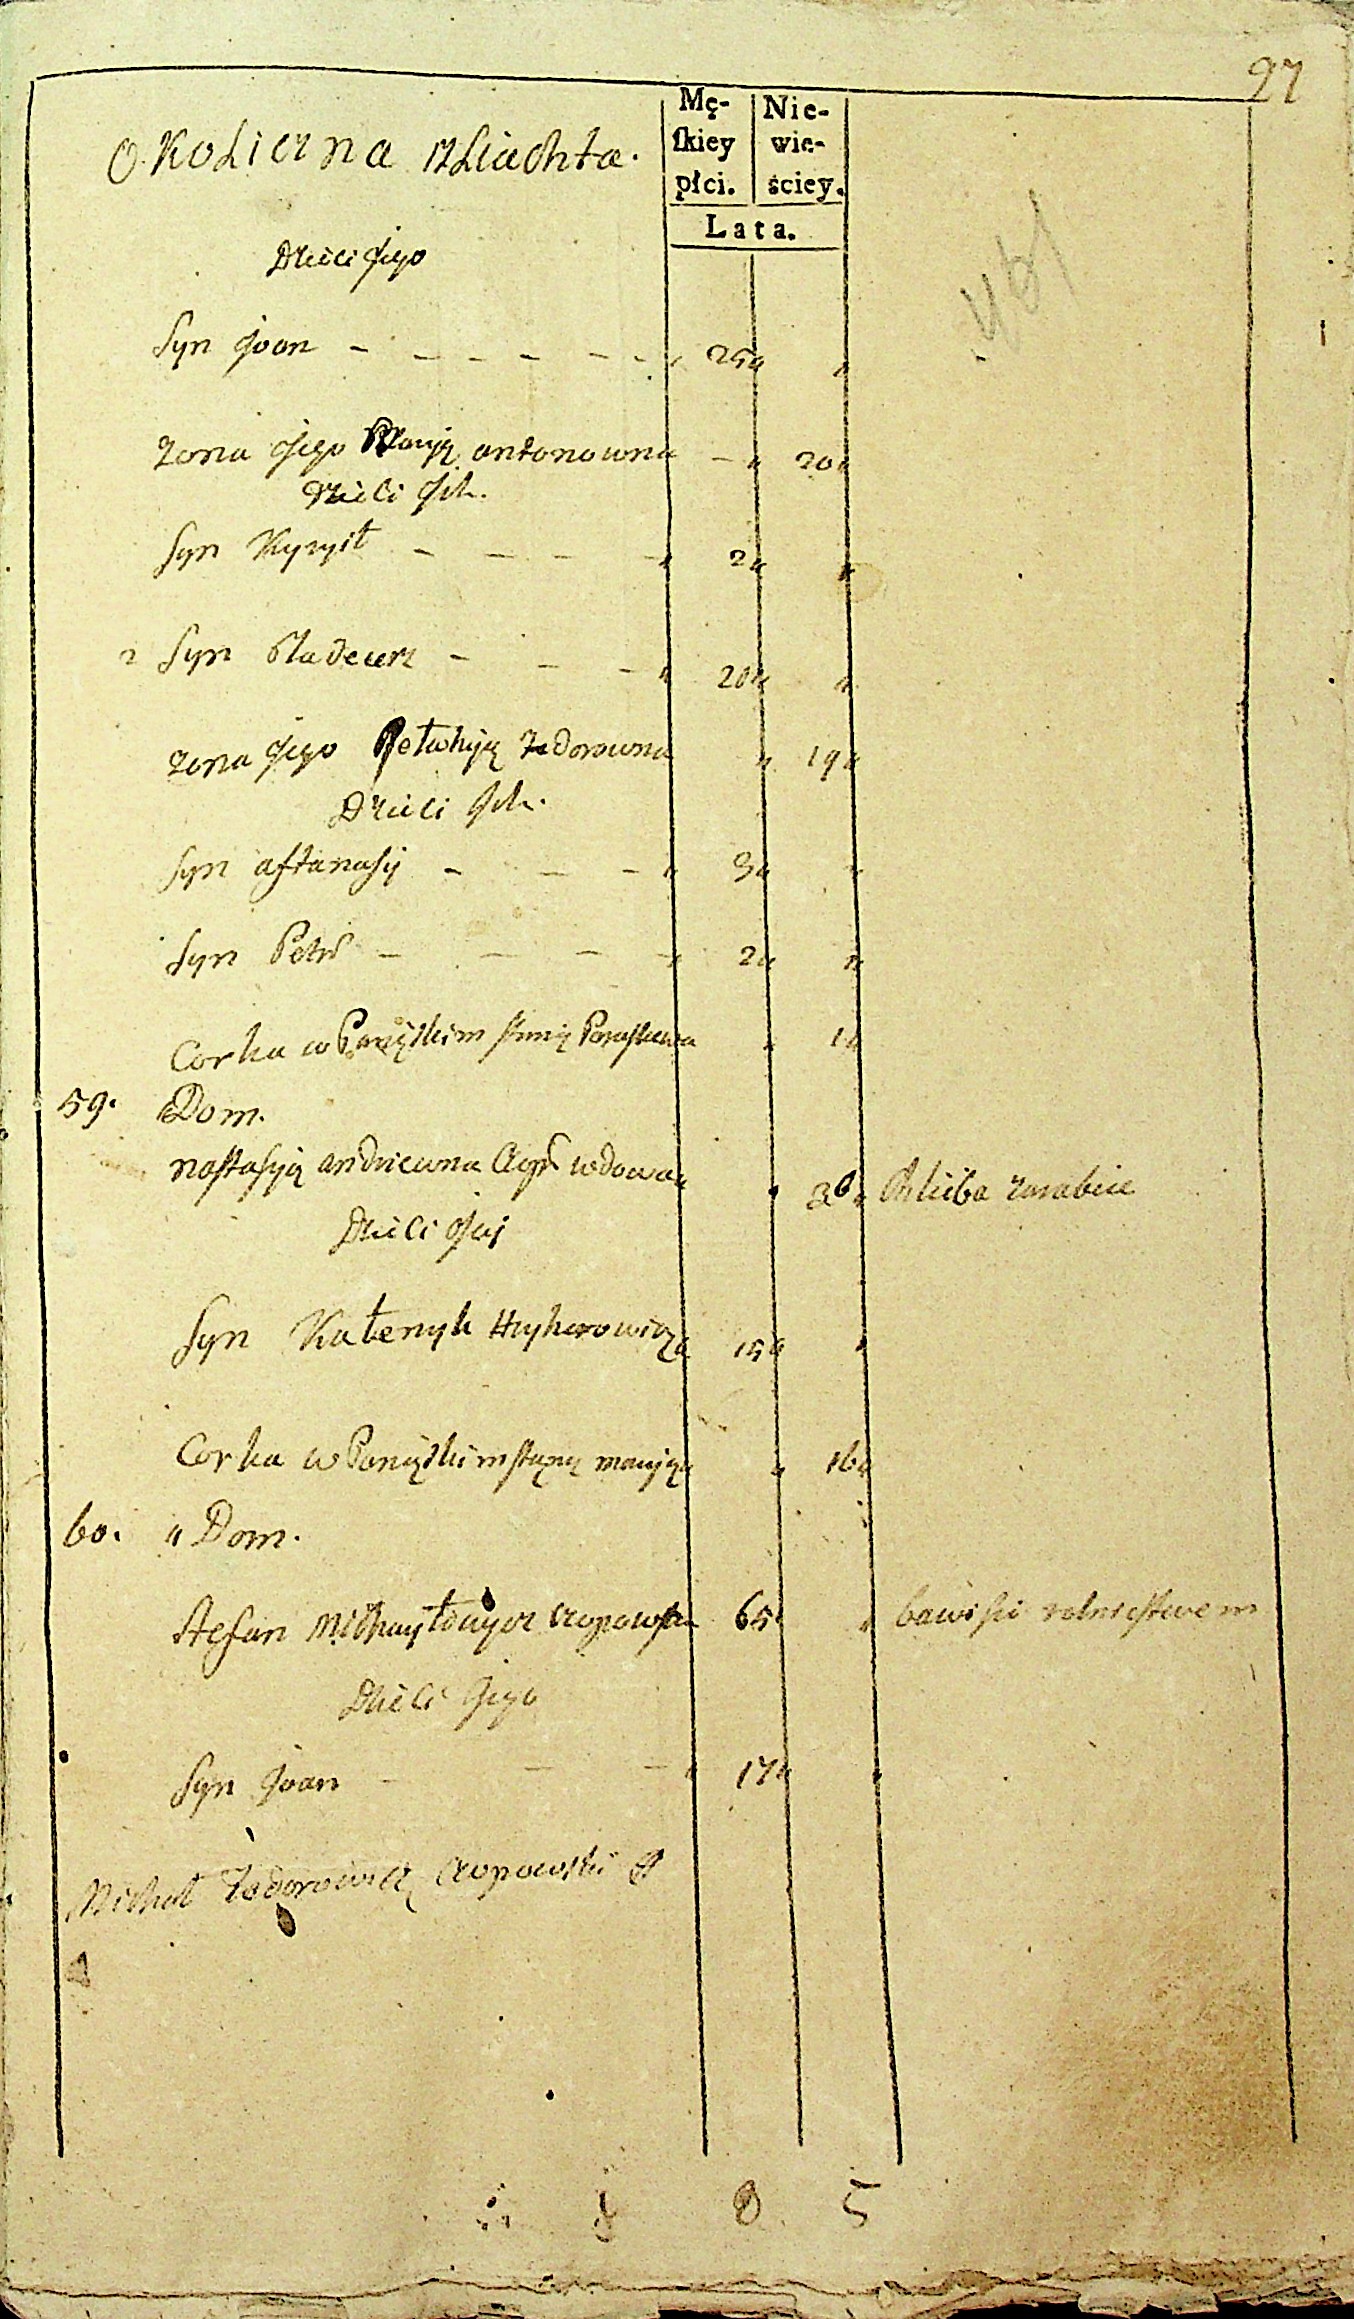 97
Okoliczna szliachta.
Mę-
skiey
płci.
Nie-
wie-
ściey.
Lata.
Dzieci Jego
Syn Joan - - - - - - „ 25 „ „
zona Jego antonowna - „ 20 „
Dzieci Jch.
Syn Kyryłł - - - - „ 2 „ „
2 Syn Tadeusz - - - „ 20 „ „
zona Jego Pełahiją Todorowna „ 19 „
Dzieci Jch.
Syn aftanasij - - - „ 3 „ „
Syn Petro - - - - „ 2 „ „
Corka w Panięskim Paraskewa „ 1 „
59. Dom.
nastasyją andriewna wdowa „ „ 36 „ Chlieba zarabiie
Dzieci Jeij
Syn Kałenyk Hryhorowicz „ 15 „ „
Corka w Panięskim stanę maryją „ „ 16 „
60. „ Dom.
Stefan Michayłowycz Czopowski 65 „ „ bawi sie rolnictwem
Dzieci Jego
Syn Joan - - - „ 17 „ „
Michał Todorowicz Czopowski
8 5